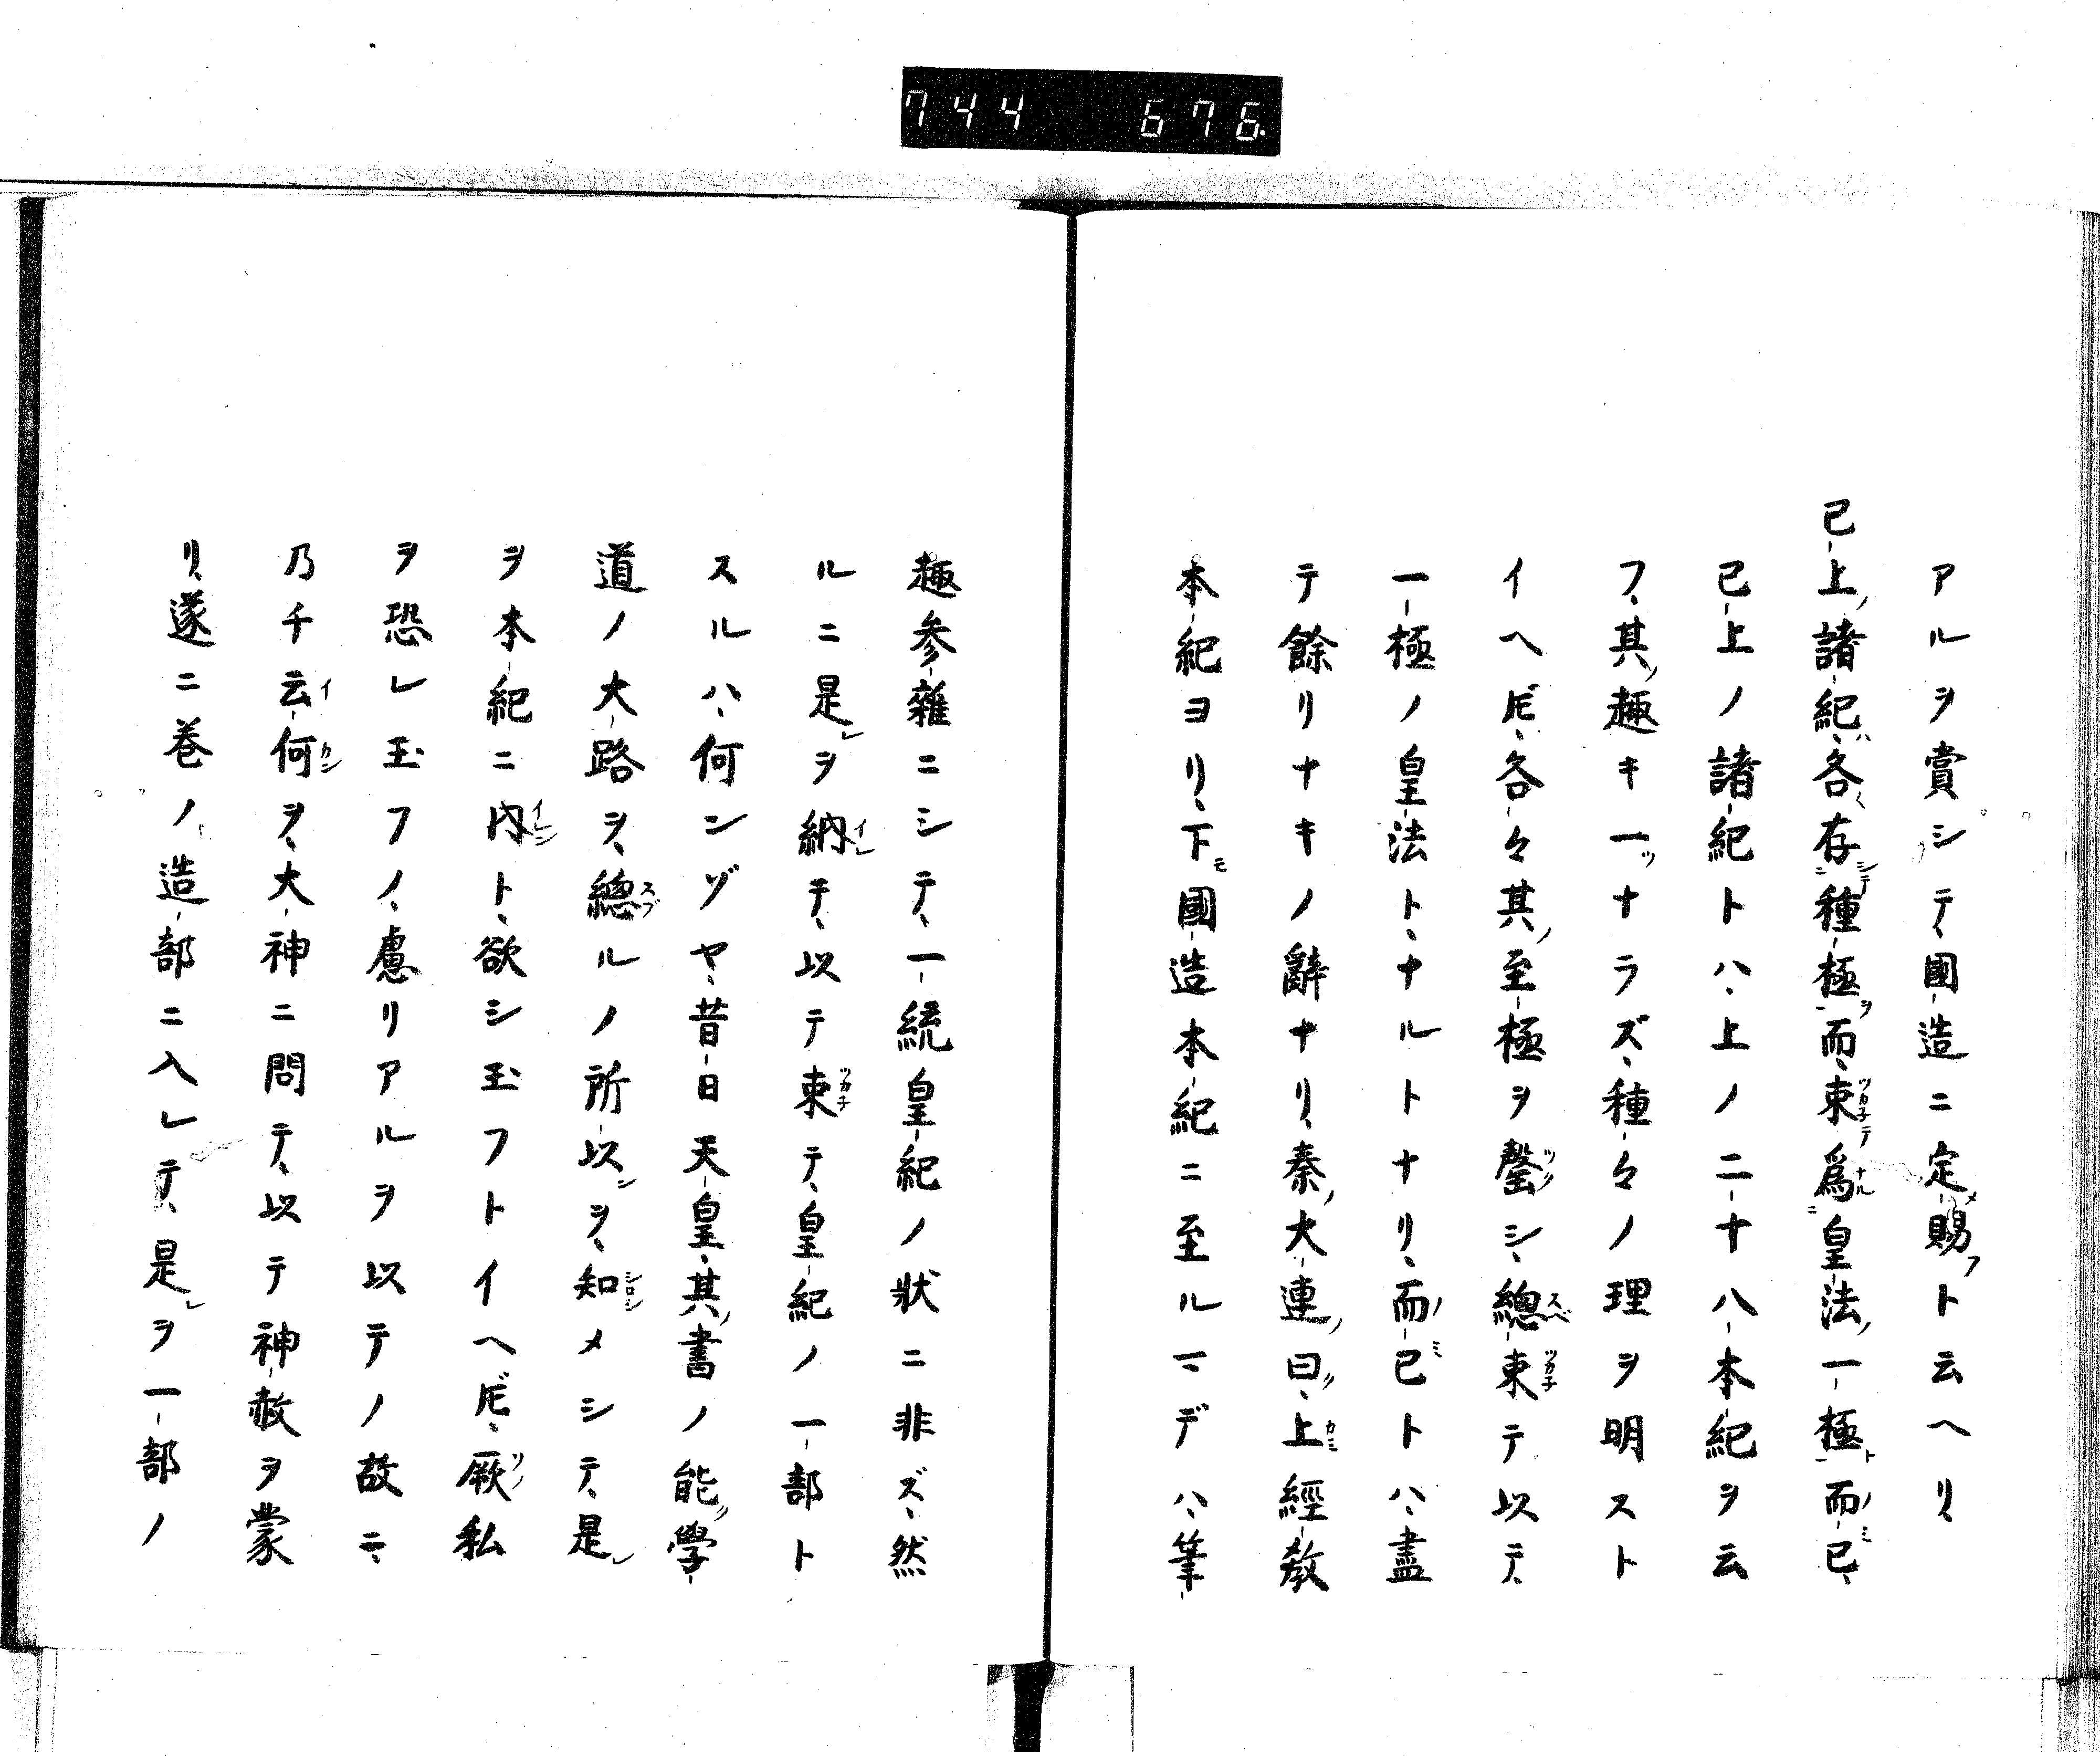 744 676.
アルヲ賞シテ、國造ニ定メ賜フト云ヘリ、
已上ノ諸紀ハ、各〻存シテ二種極ヲ一而、束ツカ子テ爲ナルニ二皇法ノ一極ト一而ノ已ミ、
已上ノ諸紀トハ、上ノ二十八本紀ヲ云
フ、其ノ趣キ一ツナラズ、種々ノ理ヲ明スト
イヘ𪜈、各々其ノ至極ヲ罄ツクシ、總スベ束ツカ子テ以テ、
一極ノ皇法ト、ナルトナリ、而ノ已ミトハ、盡
テ餘リナキノ辭ナリ、秦ノ大連ノ曰ク、上カミ經教
本紀ヨリ、下モ國造本紀ニ至ルマデハ、筆
趣参雜ニシテ、一統皇紀ノ狀ニ非ズ、然
ルニ是レヲ納イレテ、以テ束ツカ子テ、皇紀ノ一部ト
スルハ、何ンゾヤ、昔日天皇、其ノ書ノ能ク學
道ノ大路ヲ、總スブルノ所以ンヲ、知シロシメシテ、是レ
ヲ本紀ニ内イレント、欲シ玉フトイヘ𪜈、厥ソノ私
ヲ恐レ玉フノ、慮リアルヲ以テノ故ニ、
乃チ云イ何カンヲ、大神ニ問テ、以テ神赦ヲ蒙
リ、遂ニ巻ノ造部ニ入レテ、是レヲ一部ノ